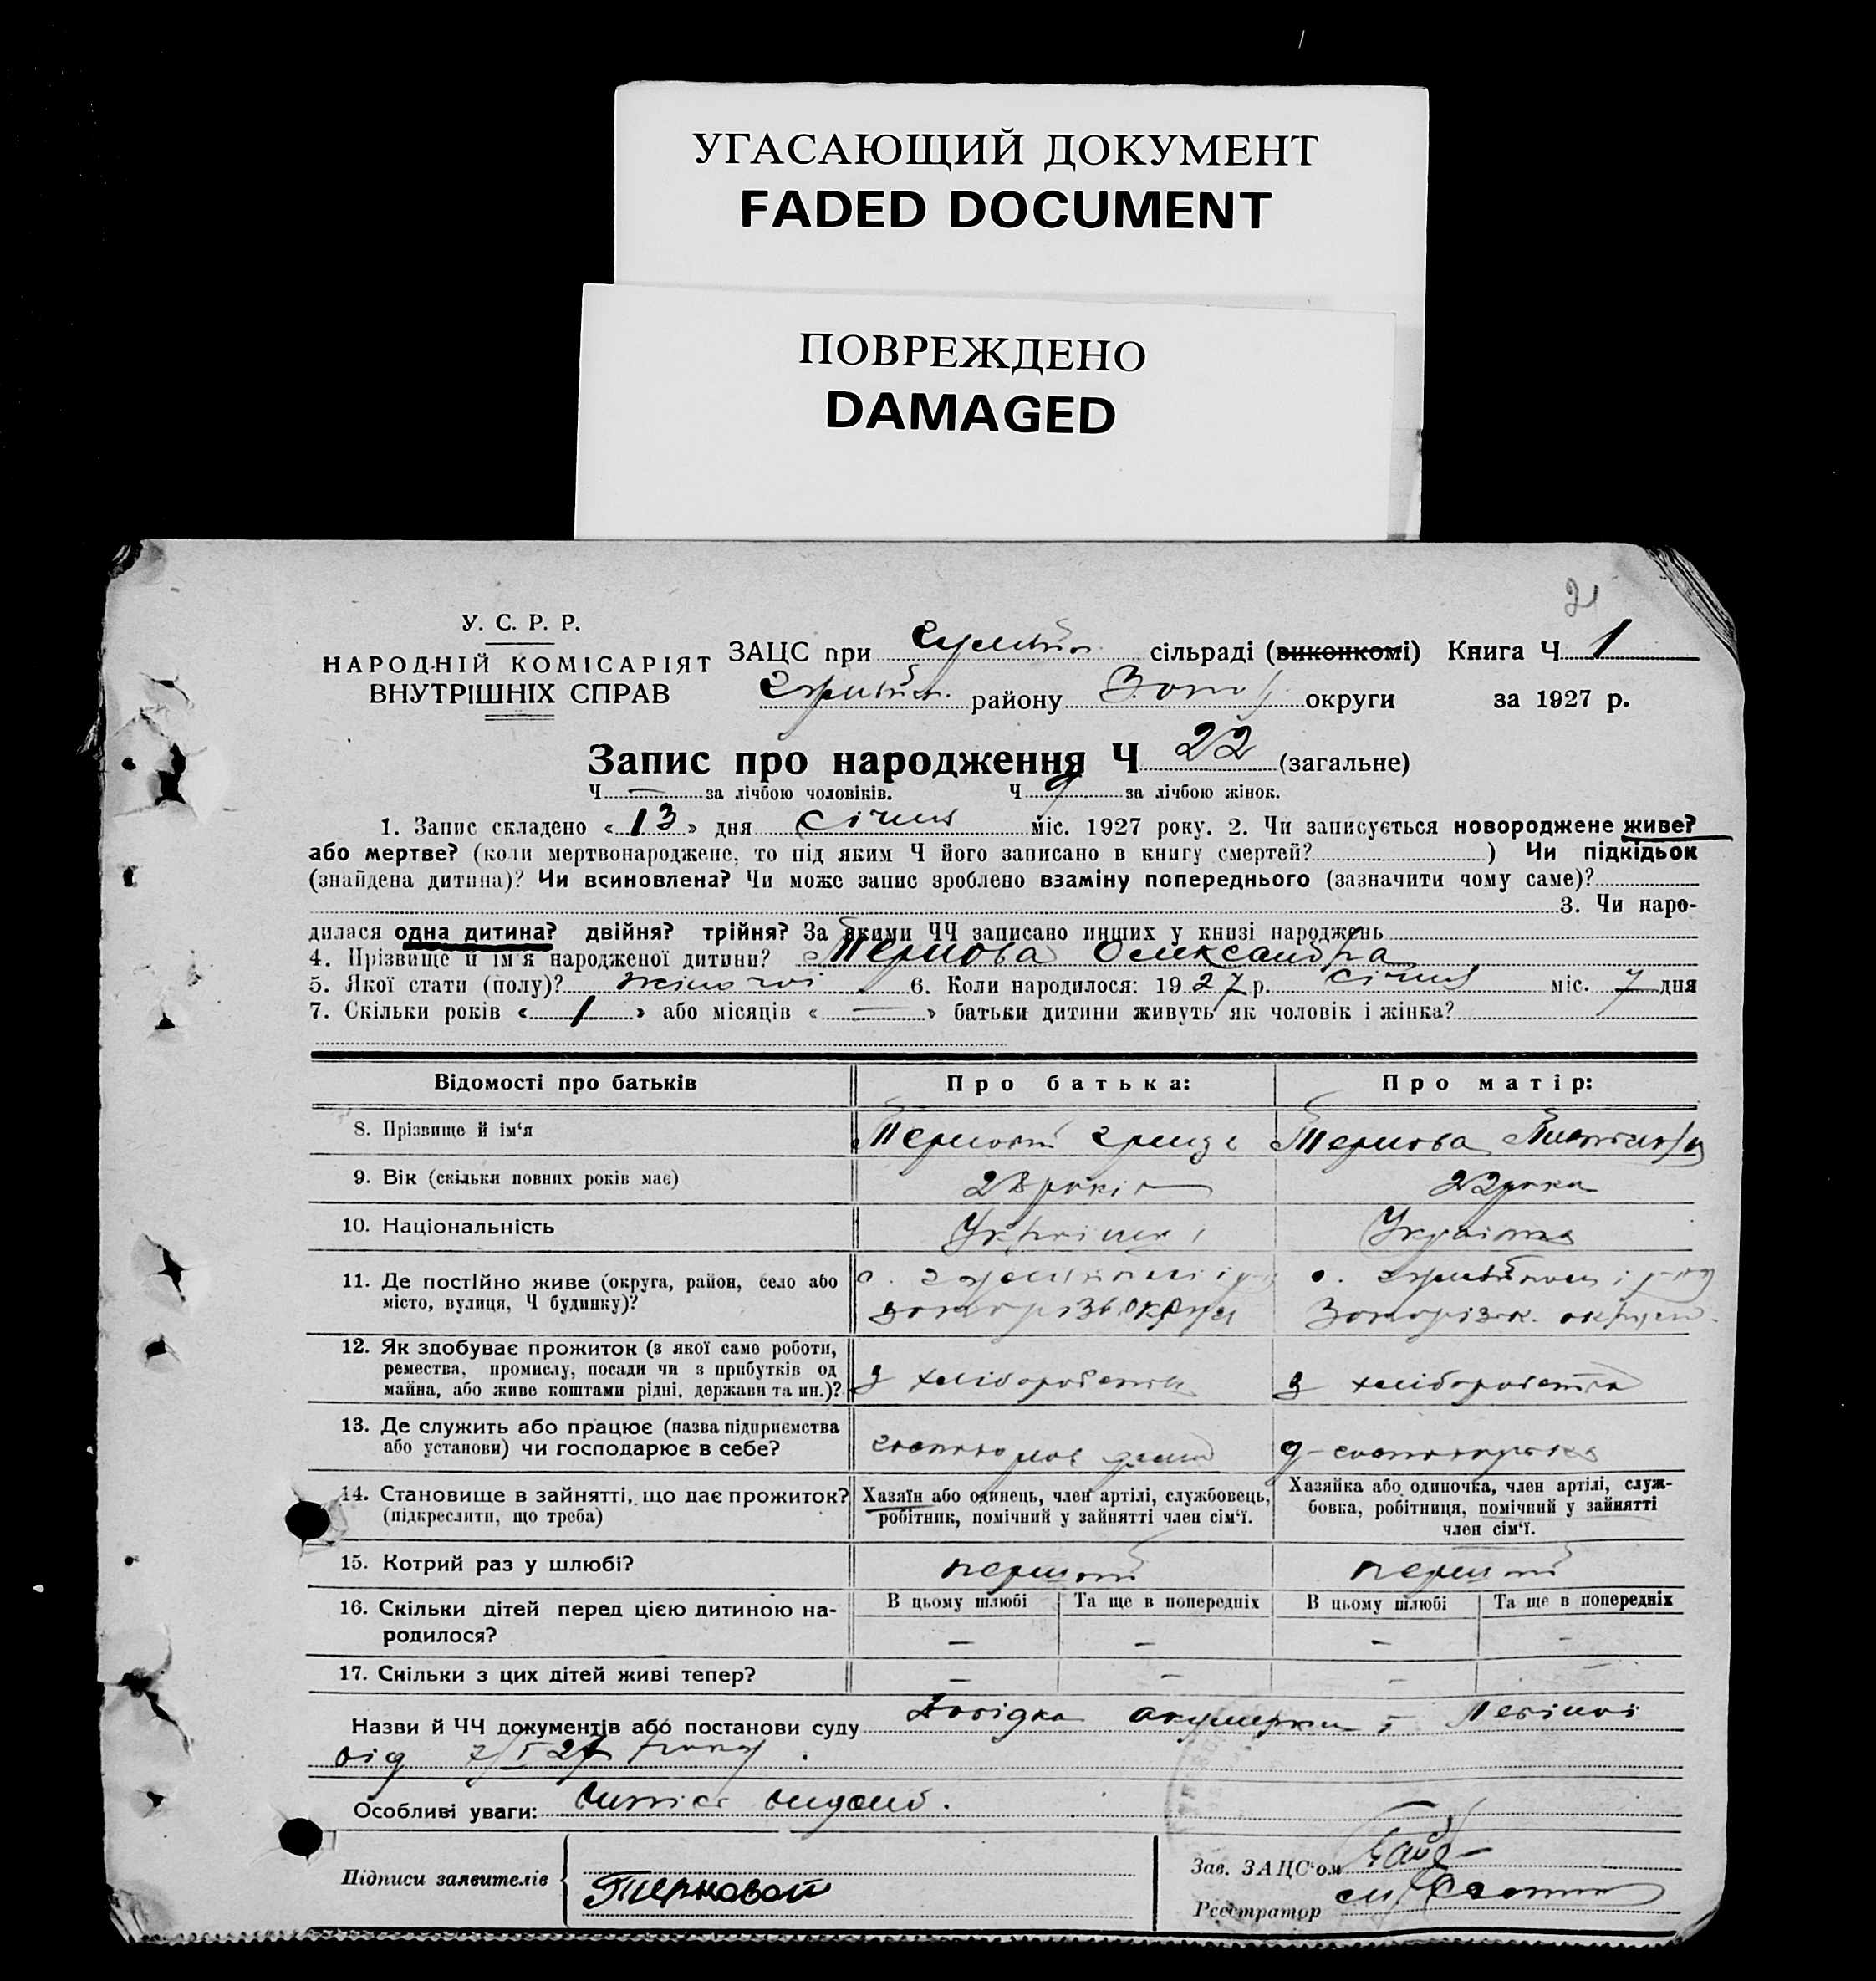 УГАСАЮЩИЙ ДОКУМЕНТ
FADED DOCUMENT
ПОВРЕЖДЕНО
DAMAGED
21
У. С. Р. Р.
НАРОДНІЙ КОМІСАРІЯТ
ВНУТРІШНІХ СПРАВ
ЗАЦС при сільраді (виконкомі) Книга Ч 1
району округи за 1927 р.
Запис про народження Ч 22 (загальне)
Ч — за лічбою чоловіків. Ч 9 за лічбою жінок.
1. Запис складено « 13 » дня січня міс. 1927 року. 2. Чи записується новороджене живе?
або мертве? (коли мертвонароджене, то під яким Ч його записано в книгу смертей? ) Чи підкідьок
(знайдена дитина)? Чи всиновлена? Чи може запис зроблено взаміну попереднього (зазначити чому саме)?
3. Чи наро-
дилася одна дитина? двійня? трійня? За якими ЧЧ записано инших у книзі народжень
4. Прізвище й ім'я народженої дитини? Тернова Олександра
5. Якої стати (полу)? жіночої 6. Коли народилося: 1927 р. січня міс. 7 дня
7. Скільки років « 1 » або місяців « — » батьки дитини живуть як чоловік і жінка?
Відомості про батьків Про батька: Про матір:
8. Прізвище й ім'я Терновий Тернова
9. Вік (скільки повних років має) 28 років 22 роки
10. Національність Українець Українка
11. Де постійно живе (округа, район, село або
місто, вулиця, Ч будинку)?
12. Як здобуває прожиток (з якої саме роботи,
ремества, промислу, посади чи з прибутків од
майна, або живе коштами рідні, держави та ин.)? З хліборобства З хліборобства
13. Де служить або працює (назва підприємства
або установи) чи господарює в себе?
14. Становище в зайнятті, що дає прожиток? Хазяїн або одинець, член артілі, службовець, Хазяйка або одиночка, член артілі, служ-
(підкреслити, що треба) робітник, помічний у зайнятті член сім'ї. бовка, робітниця, помічний у зайнятті
член сім'ї.
15. Котрий раз у шлюбі? перший перший
16. Скільки дітей перед цією дитиною на- В цьому шлюбі Та ще в попередніх В цьому шлюбі Та ще в попередніх
родилося? — — — —
17. Скільки з цих дітей живі тепер? — — — —
Назви й ЧЧ документів або постанови суду Довідка акушерки
від 7/I 27 року.
Особливі уваги: видано.
Підписи заявителів Терновой
Зав. ЗАЦС'ом
Реєстратор